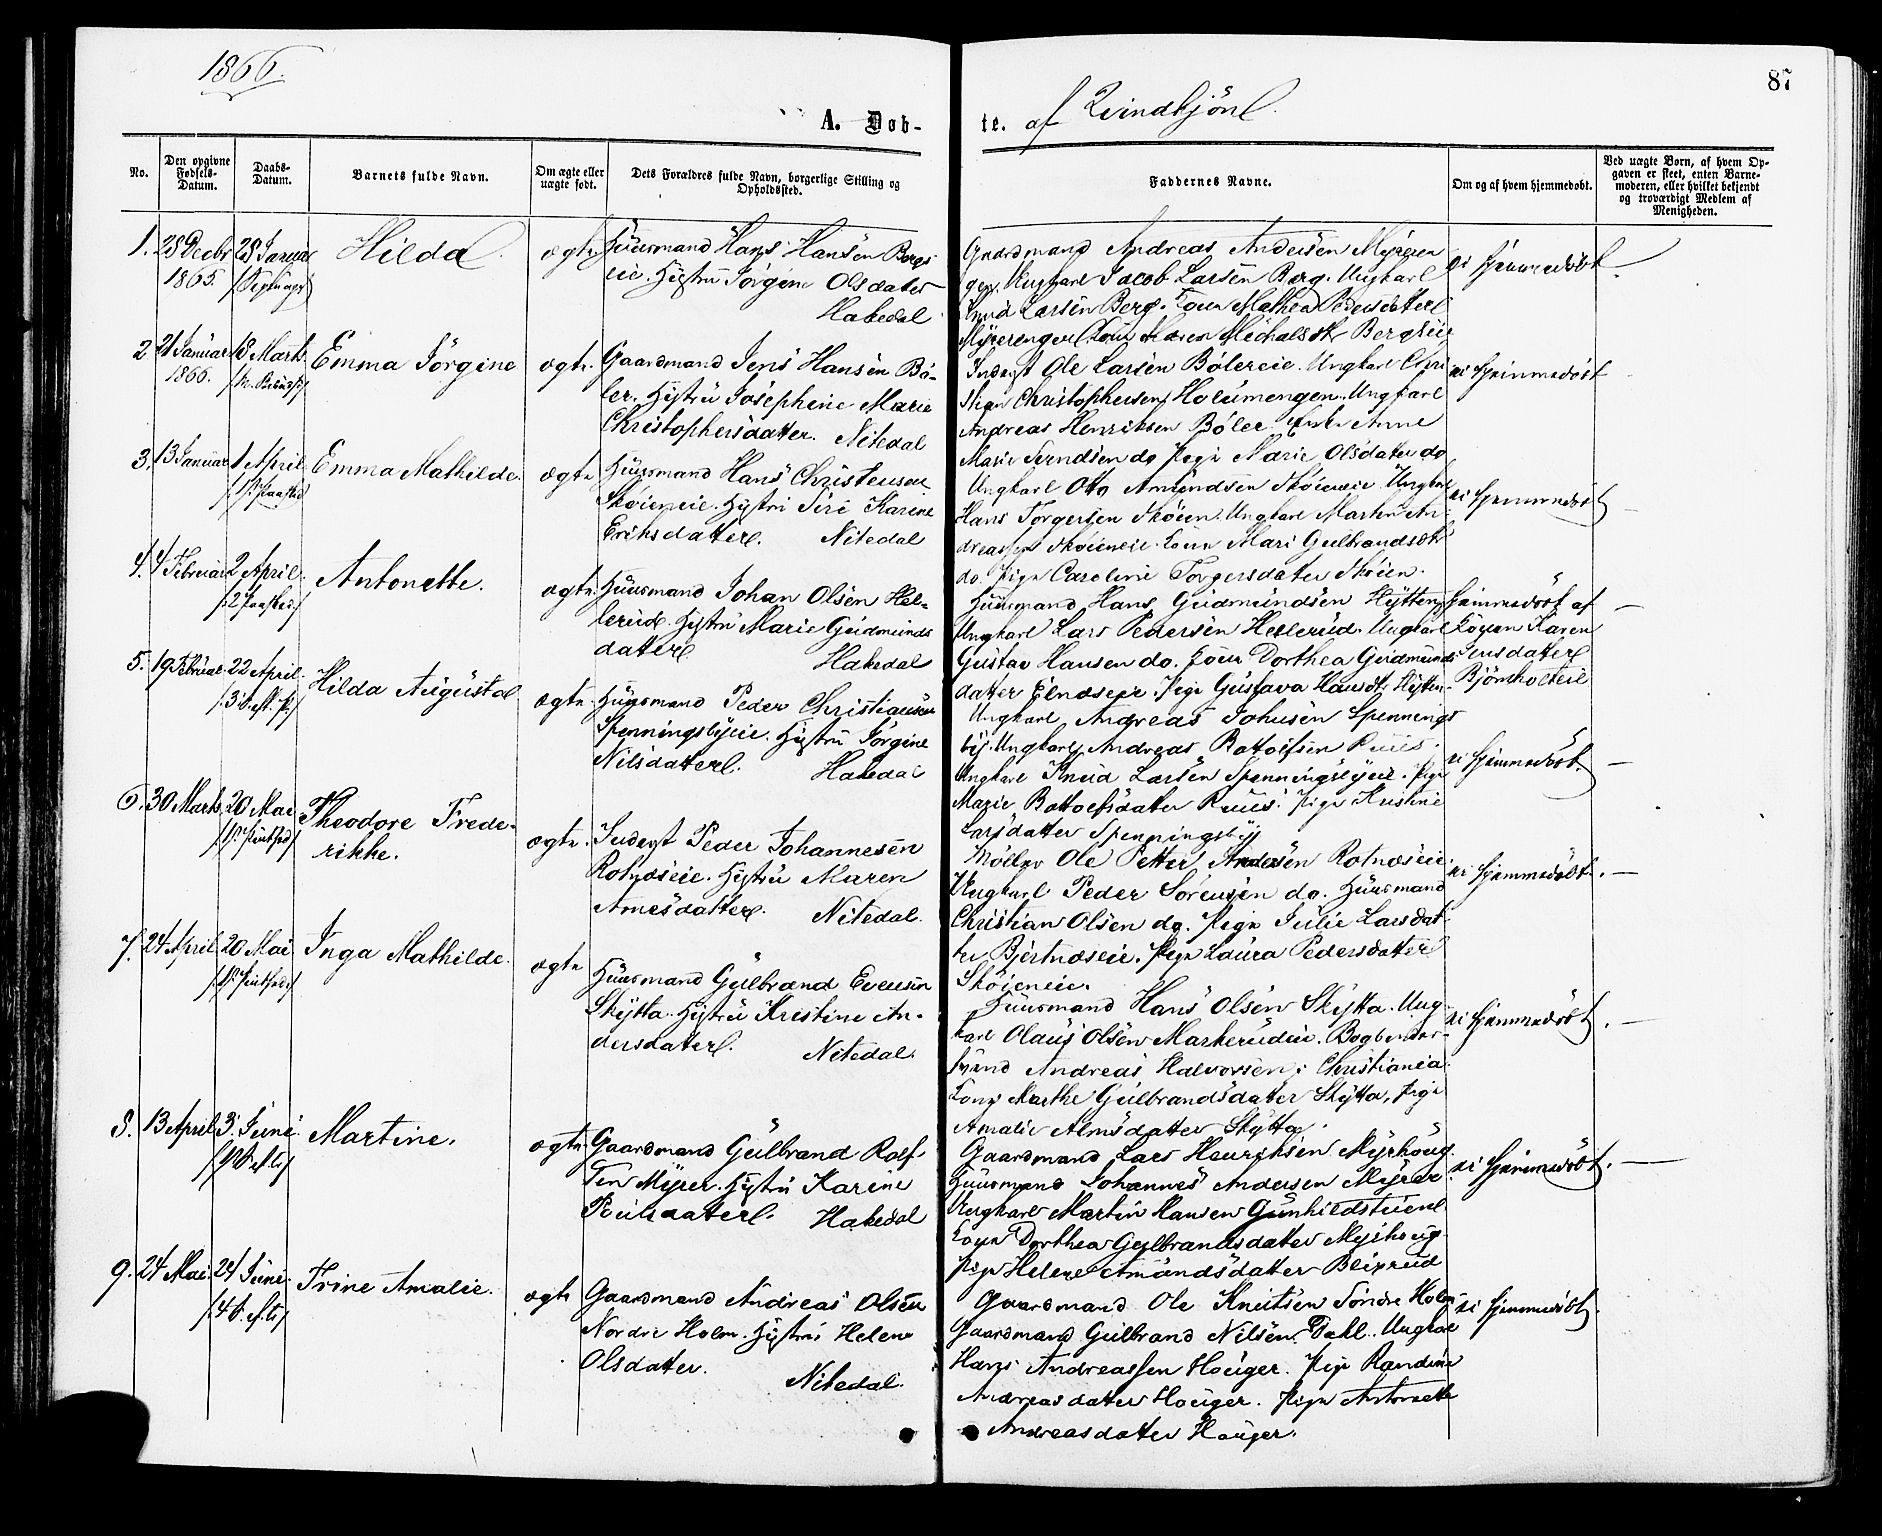 1866.
87
A. Døb-
te. af Qvindkjön.
No.
Den opgivne Fødsels-Datum.
Daabs-Datum.
Barnets fulde Navn.
Om ægte eller uægte født.
Dets Forældres fulde Navn, borgerlige Stilling og Opholdssted.
Faddernes Navne.
Om og af hvem hjemmedøbt.
Ved uægte Børn, af hvem Op-
gaven er skeet, enten Barne-
moderen, eller hvilket bekjendt
og troværdigt Medlem af
Menigheden.
1. 28 Decbr 1865. 28 Januar
Hilda
ægte
Huusmand Hans Hansen Bergs-
eie. Hustru Jörgine Olsdatter
Hakedal
Gaardmand Andreas Andersen Myren
Ungkarl Jacob Larsen Berg. Ungkarl
Knud Larsen Berg. Kone Mathea Pedersdatter
Myrerengen Kone Maren Michalsdtr Bergseie
ei hjemmedöbt.
2 21 Januar 1866. 18 Marts
Emma Jörgine
ægte.
Gaardmand Jens Hansen Bö-
ler. Hustru Josephine Marie
Christophersdatter. Nitedal
Inderst Ole Larsen Bölereie. Ungkarl Chri
stian Christophersen Holumengen. Ungkarl
Andreas Henriksen Böler. Enke Anne
Marie Svendsen do Pige Marie Olsdatter do
ei hjemmedöbt
3. 13 Januar 1 April
Emma Mathilde.
ægte
Huusmand Hans Christensen
Sköieneie. Hustru Siri Karine
Eriksdatter. Nitedal
Ungkarl Otto Amundsen Sköieneie. Ungkarl
Hans Torgersen Sköien. Ungkarl Martin An-
dreassen Sköieneie. Kone Mari Gulbrandsdtr
do. Pige Caroline Torgersdatter Sköien.
ei hjemmedöbt
4. 4 Februar 2 April
Antonette.
ægte.
Huusmand Johan Olsen Hel-
lerud. Hustru Marie Gudmunds
datter Hakedal
Huusmand Hans Gudmundsen Hytten
Ungkarl Lars Pedersen Hellerud. Ungkarl
Gustav Hansen do. Kone Dorthea Gudmunds
datter Elnæseie. Pige Gustava Hansdtr Hytten.
hjemmedöbt af
Konen Karen
Jensdatter
Björnholteie
5. 19 Februar 22 April
Hilda Augusta
ægte.
Huusmand Peder Christiansen
Spenningsbyeie. Hustru Jörgine
Nilsdatter. Hakedal
Ungkarl Andreas Johnsen Spennings
by. Ungkarl Andreas Bottolfsen Ruus.
Ungkarl Knud Larsen Spenningsbyeie. Pige
Marie Bottolfsdatter Ruus. Pige Kristine
Larsdatter Spenningsby
ei hjemmedöbt.
6. 30 Marts 20 Mai
Theodore Frede-
rikke.
ægte.
Inderst Peder Johannesen
Rotnæseie. Hustru Maren
Arnesdatter. Nitedal.
Möller Ole Petter Andersen Rotnæseie.
Ungkarl Peder Sörensen do. Huusmand
Christian Olsen do. Pige Julie Larsdat-
ter Bjertnæseie. Pige Laura Pedersdatter
Sköieneie.
ei hjemmedöbt.
7. 24 April 20 Mai
Inga Mathilde.
ægte
Huusmand Gulbrand Evensen
Skytta. Hustru Kristine An-
dersdatter. Nitedal.
Huusmand Hans Olsen Skytta. Ung
karl Olaus Olsen Markerudeie. Bogbinder-
svend Andreas Halvorsen, Christiania.
Kone Marthe Gulbrandsdatter Skytta, Pige
Amalie Almsdatter Skytta.
ei hjemmedöbt.
8. 13 April 3 Juni
Martine.
ægte
Gaardmand Gulbrand Rolf-
sen Myrer. Hustru Karine
Poulsdatter. Hakedal
Gaardmand Lars Henriksen Myrhoug
Huusmand Johannes Andersen Myrer
Ungkarl Martin Hansen Gunhildstuen
Kone Dorthea Gulbrandsdatter Myrhoug
Pige Helene Amundsdatter Bleierud
ei hjemmedöbt.
9. 24 Mai 24 Juni
Trine Amalie.
ægte
Gaardmand Andreas Olsen
Nordre Holm. Hustru Helene
Olsdatter. Nitedal.
Gaardmand Ole Knutsen Söndre Holm
Gaardmand Gulbrand Nilsen Dahl. Ungkarl
Hans Andreassen Houger. Pige Randine
Andreasdatter Houger. Pige Antonette
Andreasdatter Houger.
ei hjemmedöbt.